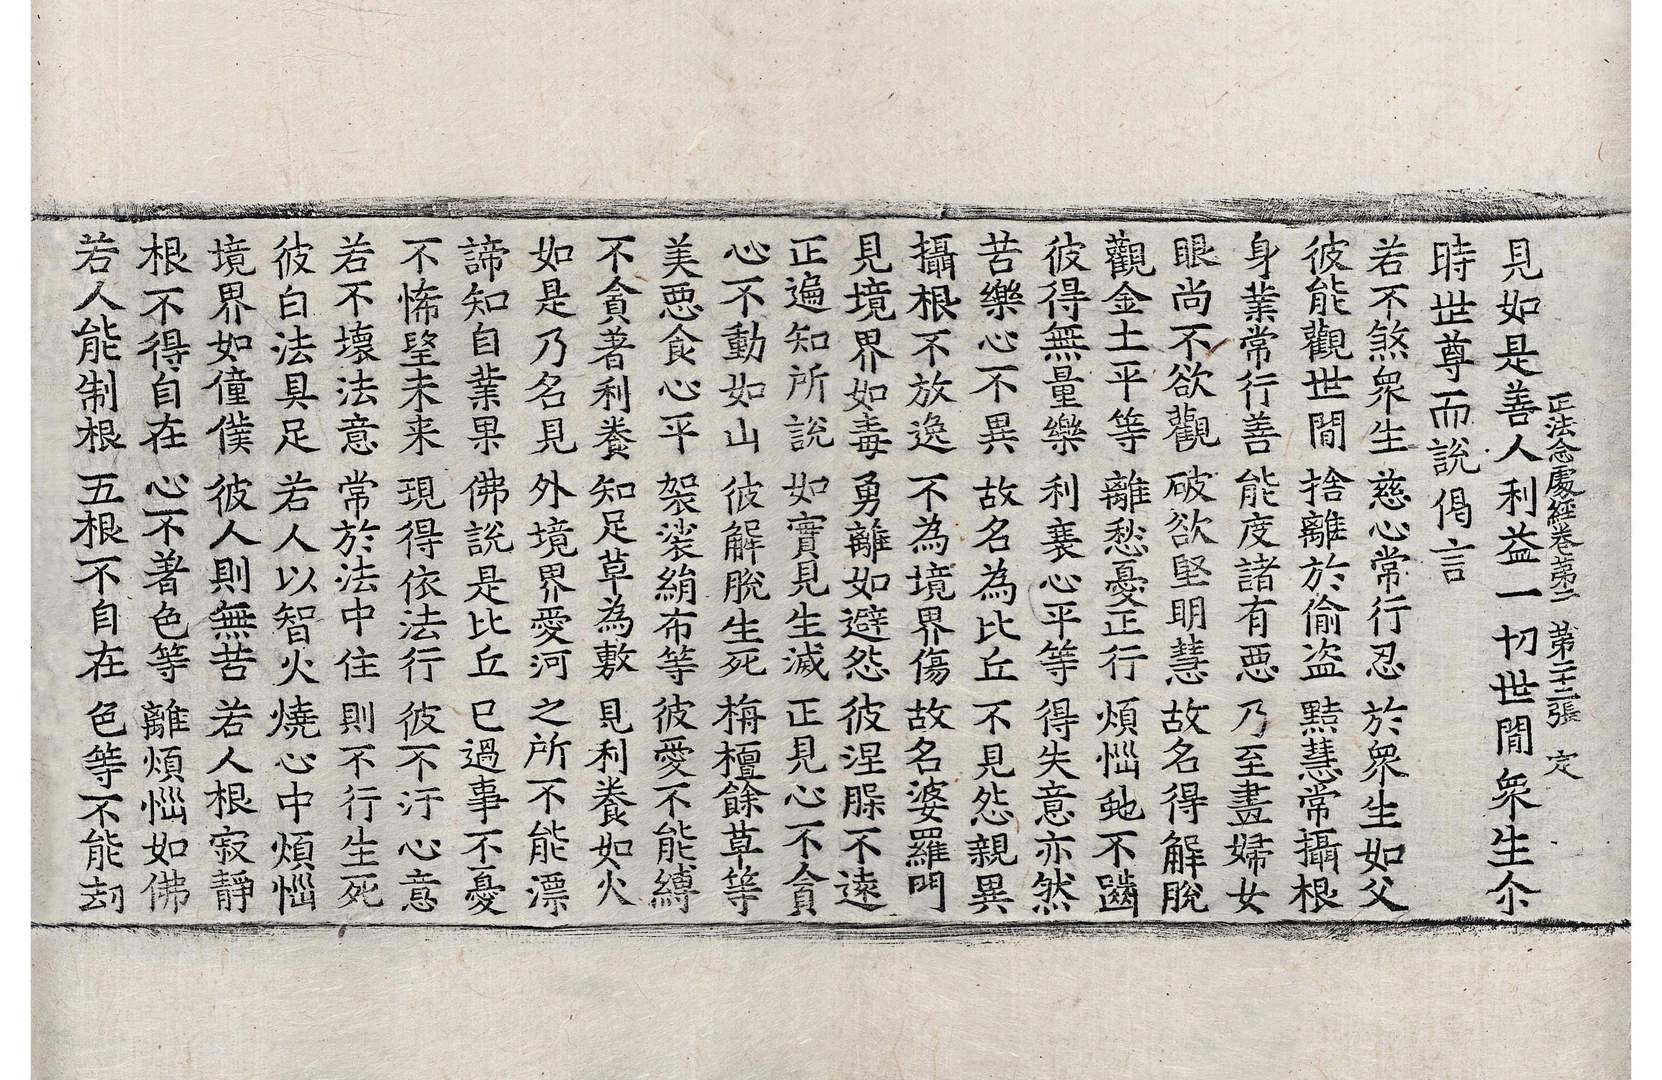 正法念處經卷第二 第二十二張 定
見如是善人利益一切世間衆生尒
時世尊而說偈言
若不煞衆生 慈心常行忍 於衆生如父
彼能觀世間 捨離於偷盗 黠慧常攝根
身業常行善 能度諸有惡 乃至畫婦女
眼尚不欲觀 破欲堅明慧 故名得解脫
觀金土平等 離愁憂正行 煩惱虵不齧
彼得無量樂 利衰心平等 得失意亦然
苦樂心不異 故名為比丘 不見怨親異
攝根不放逸 不為境界傷 故名婆羅門
見境界如毒 勇離如避怨 彼涅槃不遠
正遍知所說 如實見生滅 正見心不貪
心不動如山 彼解脫生死 栴檀餘草等
美惡食心平 袈裟絹布等 彼愛不能縛
不貪著利養 知足草為敷 見利養如火
如是乃名見 外境界愛河 之所不能漂
諦知自業果 佛說是比丘 已過事不憂
不悕望未来 現得依法行 彼不汙心意
若不壞法意 常於法中住 則不行生死
彼白法具足 若人以智火 燒心中煩惱
境界如僮僕 彼人則無苦 若人根寂靜
根不得自在 心不著色等 離煩惱如佛
若人能制根 五根不自在 色等不能刼